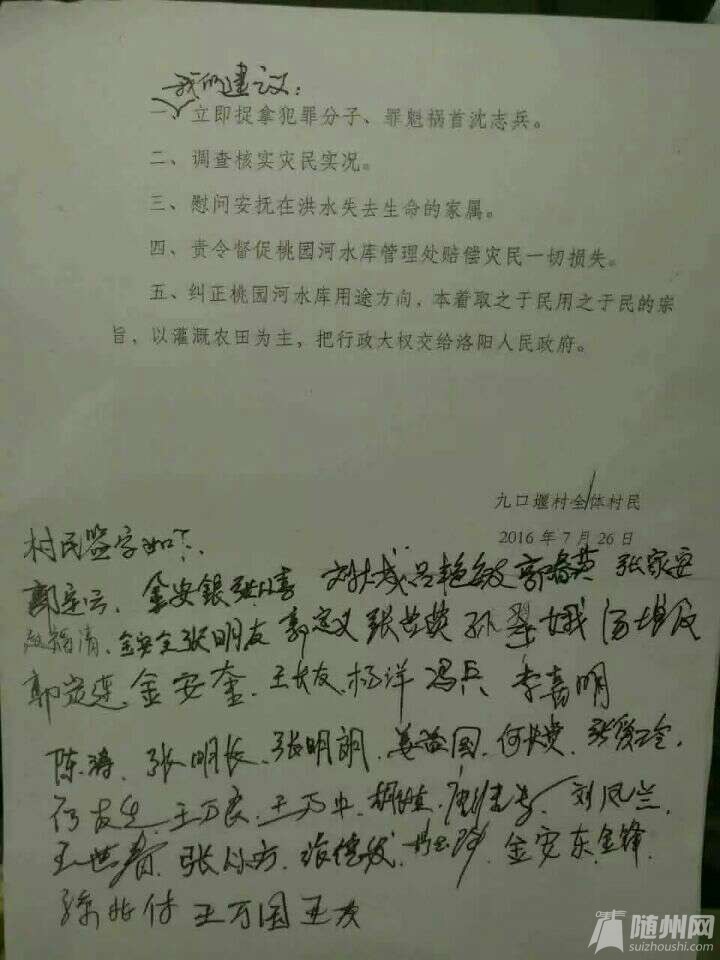 我们建议：
一、立即捉拿犯罪分子、罪魁祸首沈志兵。
二、调查核实灾民实况。
三、慰问安抚在洪水失去生命的家属。
四、责令督促桃园河水库管理处赔偿灾民一切损失。
五、纠正桃园河水库用途方向，本着取之于民用之于民的宗
旨，以灌溉农田为主，把行政大权交给洛阳人民政府。
九口堰村全体村民
2016年7月26日
村民签字如下：
郭定云、金安银 刘大成 吕艳 郭春英 张家安
金安全 张明友 郭定义 张 孙翠娥 汤
郭定莲 金安奎、王长友、杨洋 冯兵 李嘉明
陈涛、张明长、张明朗、姜益国、何长
王万良、王万中、胡 刘凤兰
王世春、张 金安东、金锋、
王万国 王友
随州网
suizhoushi.com